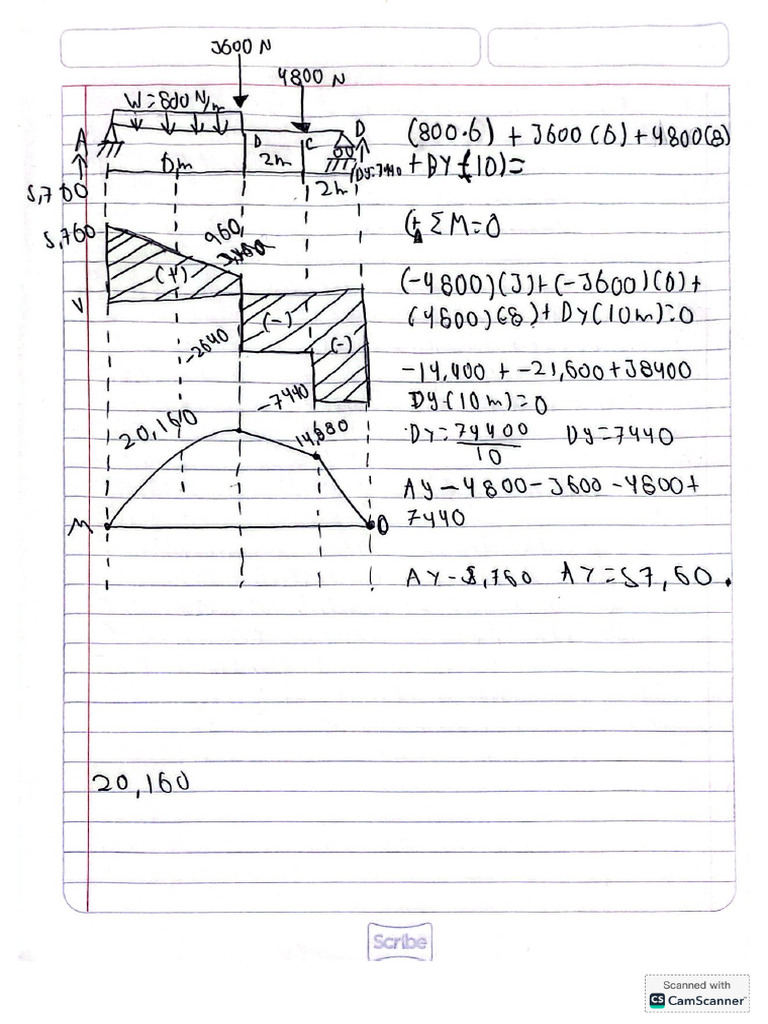 3600 N
4800 N
W=800 N/m
A
B
C
D
6m
2m
2m
Dy=7440
5,760
5,760
960
(+)
V
-2640
(-)
(-)
-7440
20,160
14,880
M
0
(800·6) + 3600(6) + 4800(8)
+ DY (10)=
(+ ΣM=0
A
(-4800)(3)+(-3600)(6)+
(4800)(8)+ Dy(10m)=0
-14,400 + -21,600+38400
Dy(10m)=0
Dy=74400/10 Dy=7440
Ay-4800-3600-4800+
7440
Ay-5,760 Ay=57,60.
20,160
Scribe
Scanned with
CS CamScanner